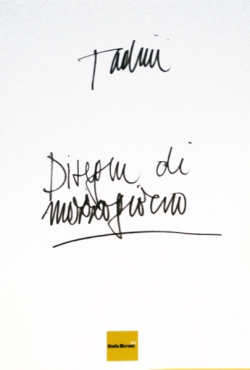 Tadini
Disegni di
mezzogiorno
Studio Marconi